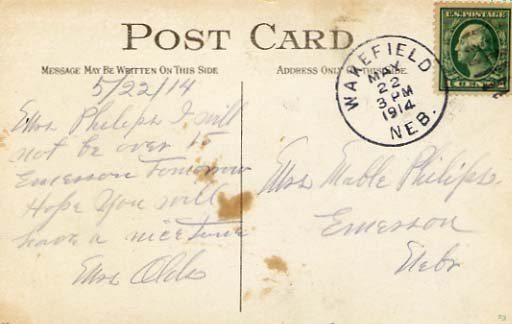 POST CARD
MESSAGE MAY BE WRITTEN ON THIS SIDE
ADDRESS ONLY ON THIS SIDE
5/22/14
Mrs Philips I will
not be over to
Emerson Tomorrow
Hope You will
have a nice time
Mrs
Mrs Mable Philips.
Emerson
Nebr
WAKEFIELD
MAY
22
3 PM
1914
NEB.
U.S. POSTAGE